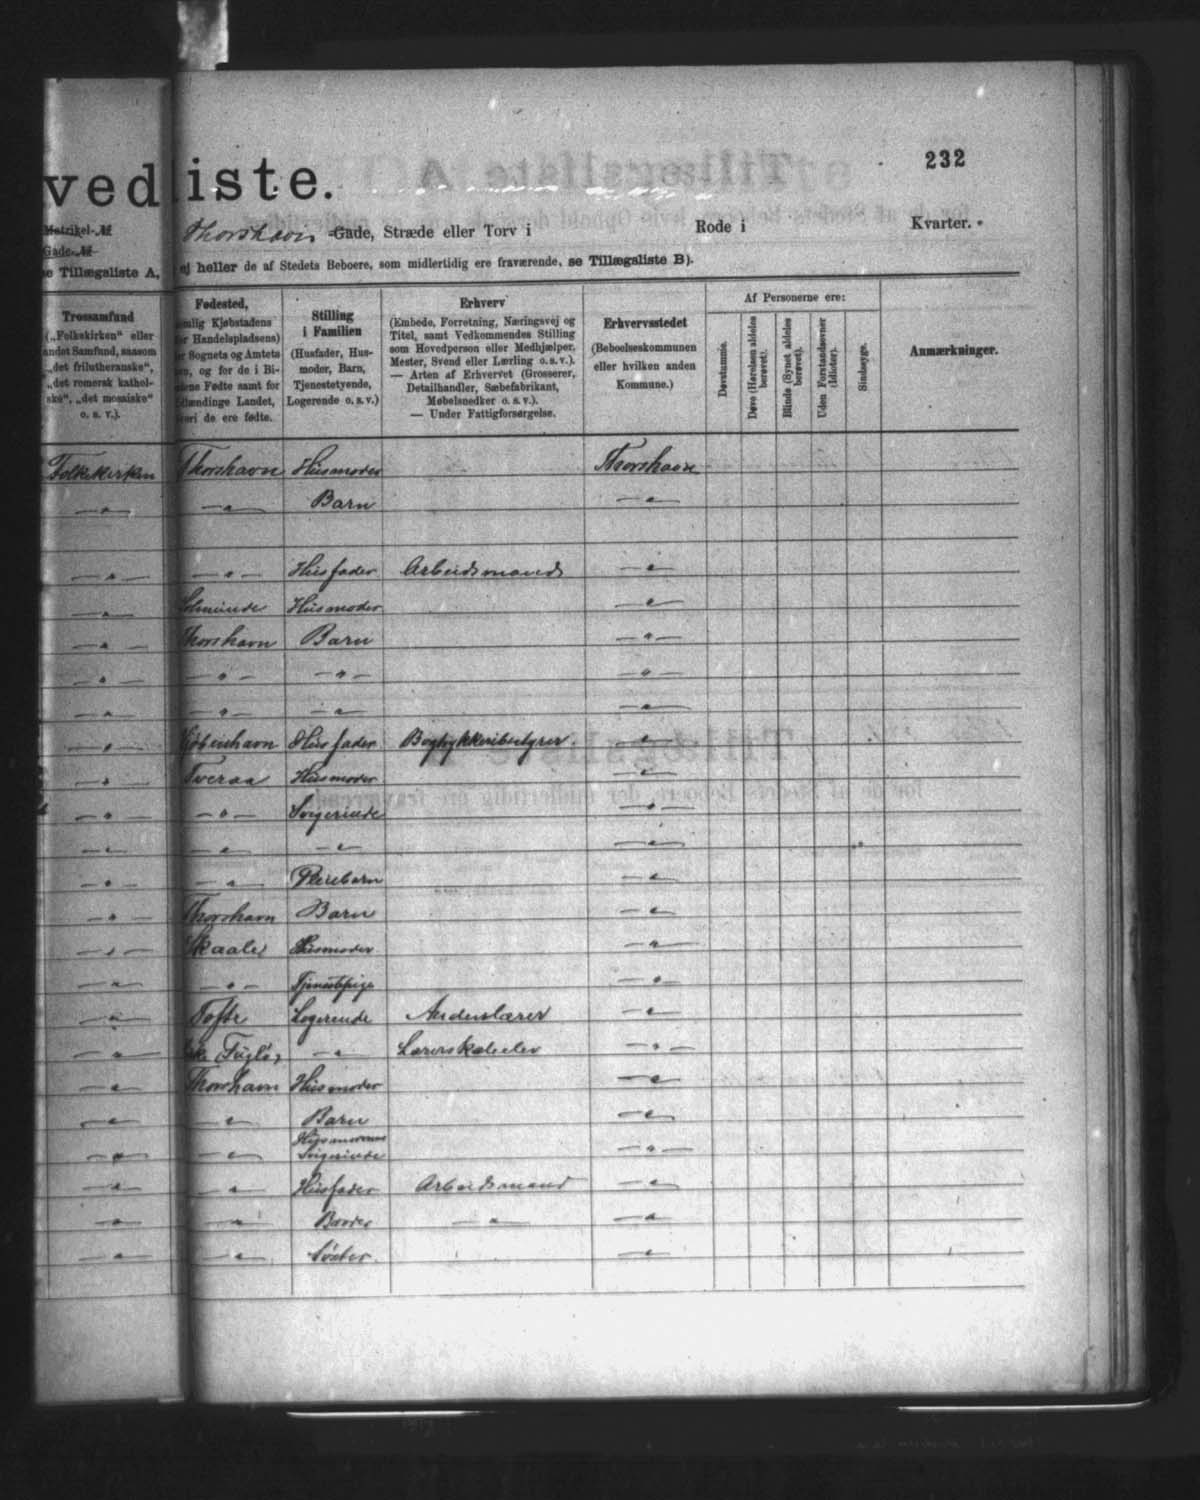 vedliste.
232
Matrikel-№
Thorshavn Gade, Stræde eller Torv i Rode i Kvarter.
Gade-№
e Tillægsliste A, ej heller de af Stedets Beboere, som midlertidig ere fraværende, se Tillægsliste B).
Trossamfund
(„Folkekirken“ eller
andet Samfund, saasom
„det frilutheranske“,
„det romersk kathol-
ske“, „det mosaiske“
o. s. v.).
Fødested,
nemlig Kjøbstadens
Handelspladsens)
Sognets og Amtets
og for de i Bi-
Fødte samt for
Udlændinge Landet,
hvori de ere fødte.
Stilling
i Familien
(Husfader, Hus-
moder, Barn,
Tjenestetyende,
Logerende o. s. v.)
Erhverv
(Embede, Forretning, Næringsvej og
Titel, samt Vedkommendes Stilling
som Hovedperson eller Medhjælper,
Mester, Svend eller Lærling o. s. v.).
— Arten af Erhvervet (Grosserer,
Detailhandler, Sæbefabrikant,
Møbelsnedker o. s. v.).
— Under Fattigforsørgelse.
Erhvervsstedet
(Beboelseskommunen
eller hvilken anden
Kommune.)
Af Personerne ere:
Døvstumme.
Døve (Hørelsen aldeles
berøvet).
Blinde (Synet aldeles
berøvet).
Uden Forstandsevner
(Idioter).
Sindssyge.
Anmærkninger.
Folkekirken Thorshavn Husmoder Thorshavn
—„— —„— Barn —„—
—„— —„— Husfader Arbeidsmand —„—
—„— Husmoder —„—
—„— Thorshavn Barn —„—
—„— —„— —„— —„—
—„— —„— —„— —„—
—„— Kjøbenhavn Husfader Bogtykkeribestyrer —„—
—„— Tveraa Husmoder —„—
—„— —„— Svigerinde —„—
—„— —„— —„— —„—
—„— —„— Pleiebarn —„—
—„— Thorshavn Barn —„—
—„— Skaale Husmoder —„—
—„— —„— Tjenestepige —„—
—„— Tofte Logerende Andenlærer —„—
—„— (Fuglø) —„— Lærerskoleelev —„—
—„— Thorshavn Husmoder —„—
—„— —„— Barn —„—
—„— —„— Husmoderens
Svigerinde —„—
—„— —„— Husfader Arbeidsmand —„—
—„— —„— Broder —„— —„—
—„— —„— Søster —„—